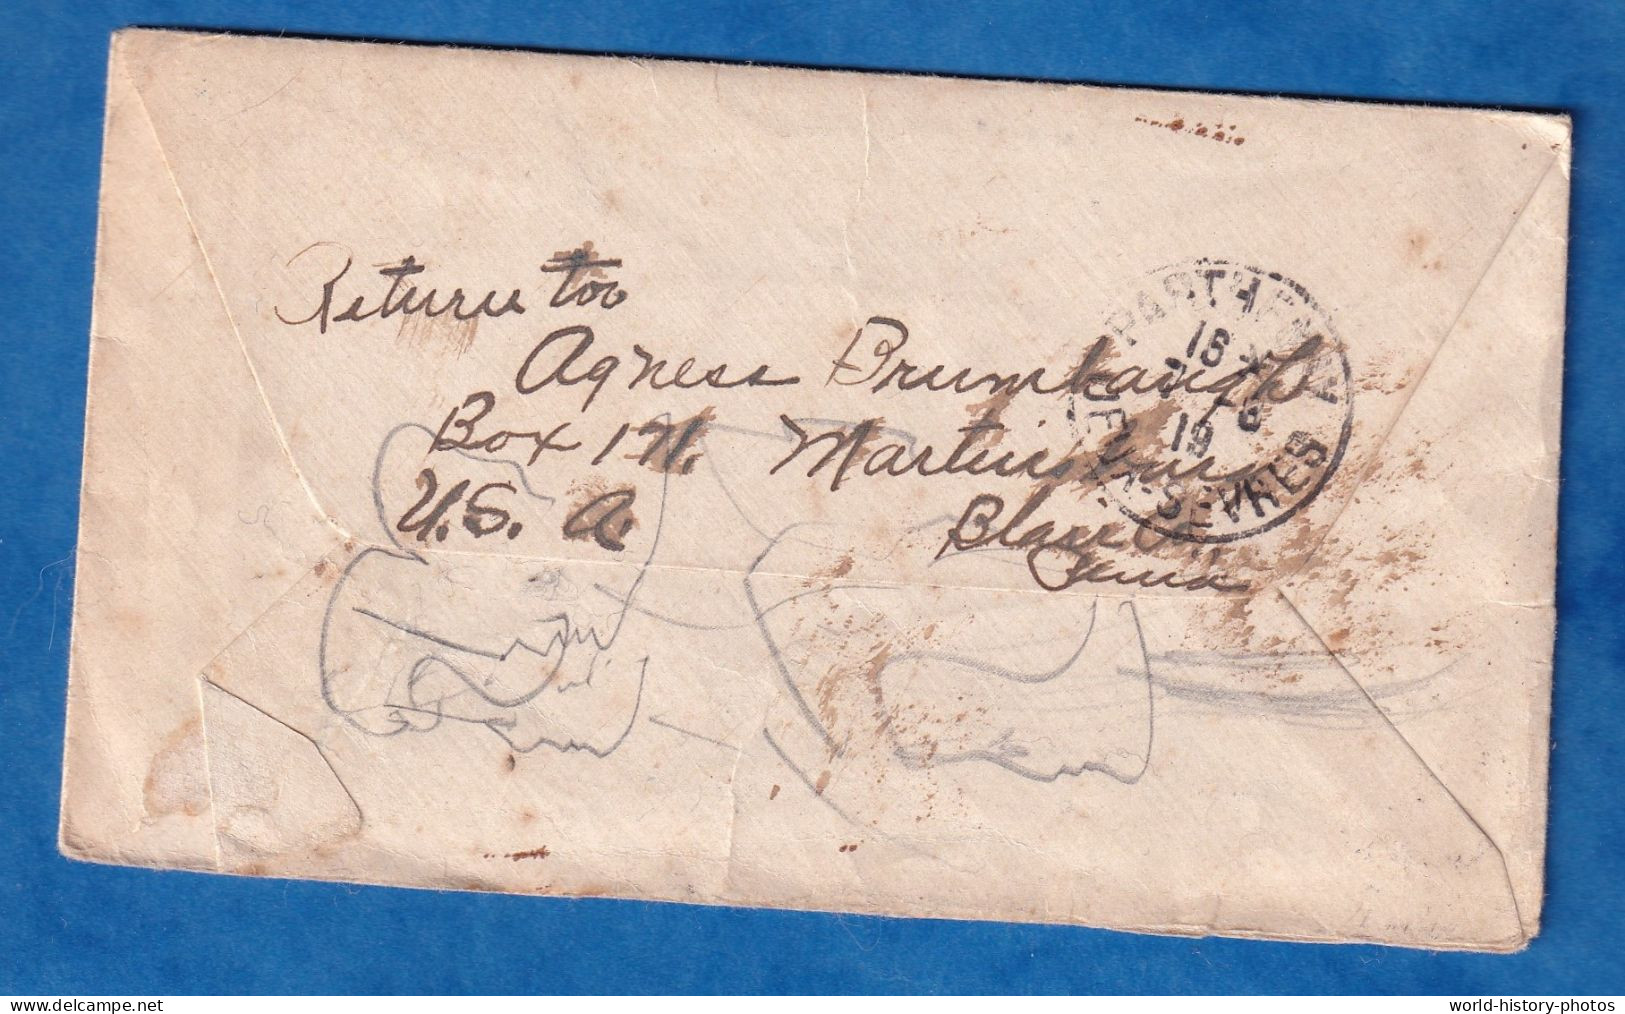 Return too
Agness Brumbaugh
Box 171. Martinsburg
U.S. A. Blair Co.
Penna
PARTHENAY
16
19
DEUX-SEVRES
delcampe.net
world-history-photos